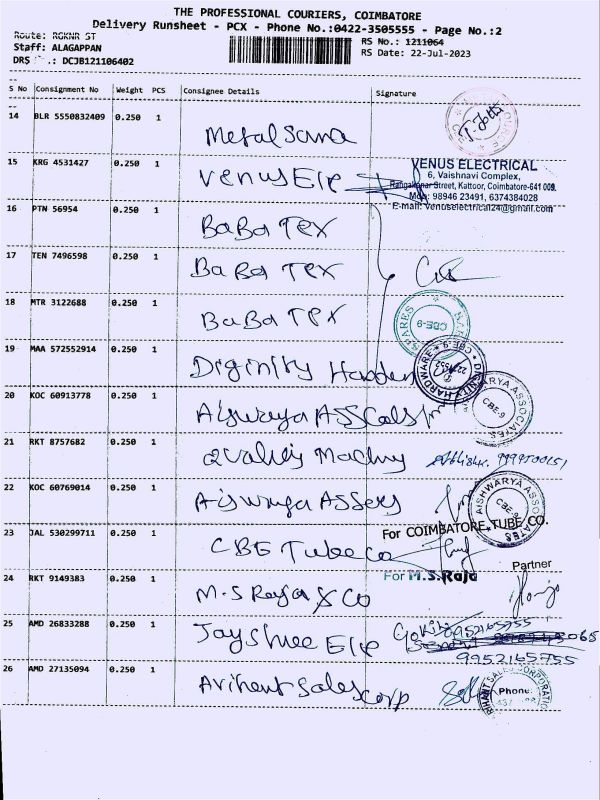 THE PROFESSIONAL COURIERS, COIMBATORE
Delivery Runsheet - PCX - Phone No.:0422-3505555 - Page No.:2
Route: RGKNR ST
RS No.: 1211064
Staff: ALAGAPPAN
RS Date: 22-Jul-2023
DRS .: DCJB121106402
S No Consignment No Weight PCS Consignee Details Signature
14 BLR 5550832409 0.250 1
15 KRG 4531427 0.250 1 Venus Ele
VENUS ELECTRICAL
6, Vaishnavi Complex,
Street, Kattoor, Coimbatore-641 009.
98946 23491, 6374384028
E-mail: venuselectrical24@gmail.com
16 PTN 56954 0.250 1 BaBa Tex
17 TEN 7496598 0.250 1 BaBa Tex
18 MTR 3122688 0.250 1 BaBa Tex
SPARES CBE-9
19 MAA 572552914 0.250 1
DIGNITY HARDWARE CBE-9
20 KOC 60913778 0.250 1
AISHWARYA ASSOCIATES CBE-9
21 RKT 8757682 0.250 1
22 KOC 60769014 0.250 1
AISHWARYA ASSOCIATES CBE-9
23 JAL 530299711 0.250 1 CBE Tube co
For COIMBATORE TUBE CO.
Partner
24 RKT 9149383 0.250 1 M.S Raja & Co
For M.S.Raja
25 AMD 26833288 0.250 1 Jayshree Ele
9952165755
9952165755
26 AMD 27135094 0.250 1 Arihant Sales corp
Phone: